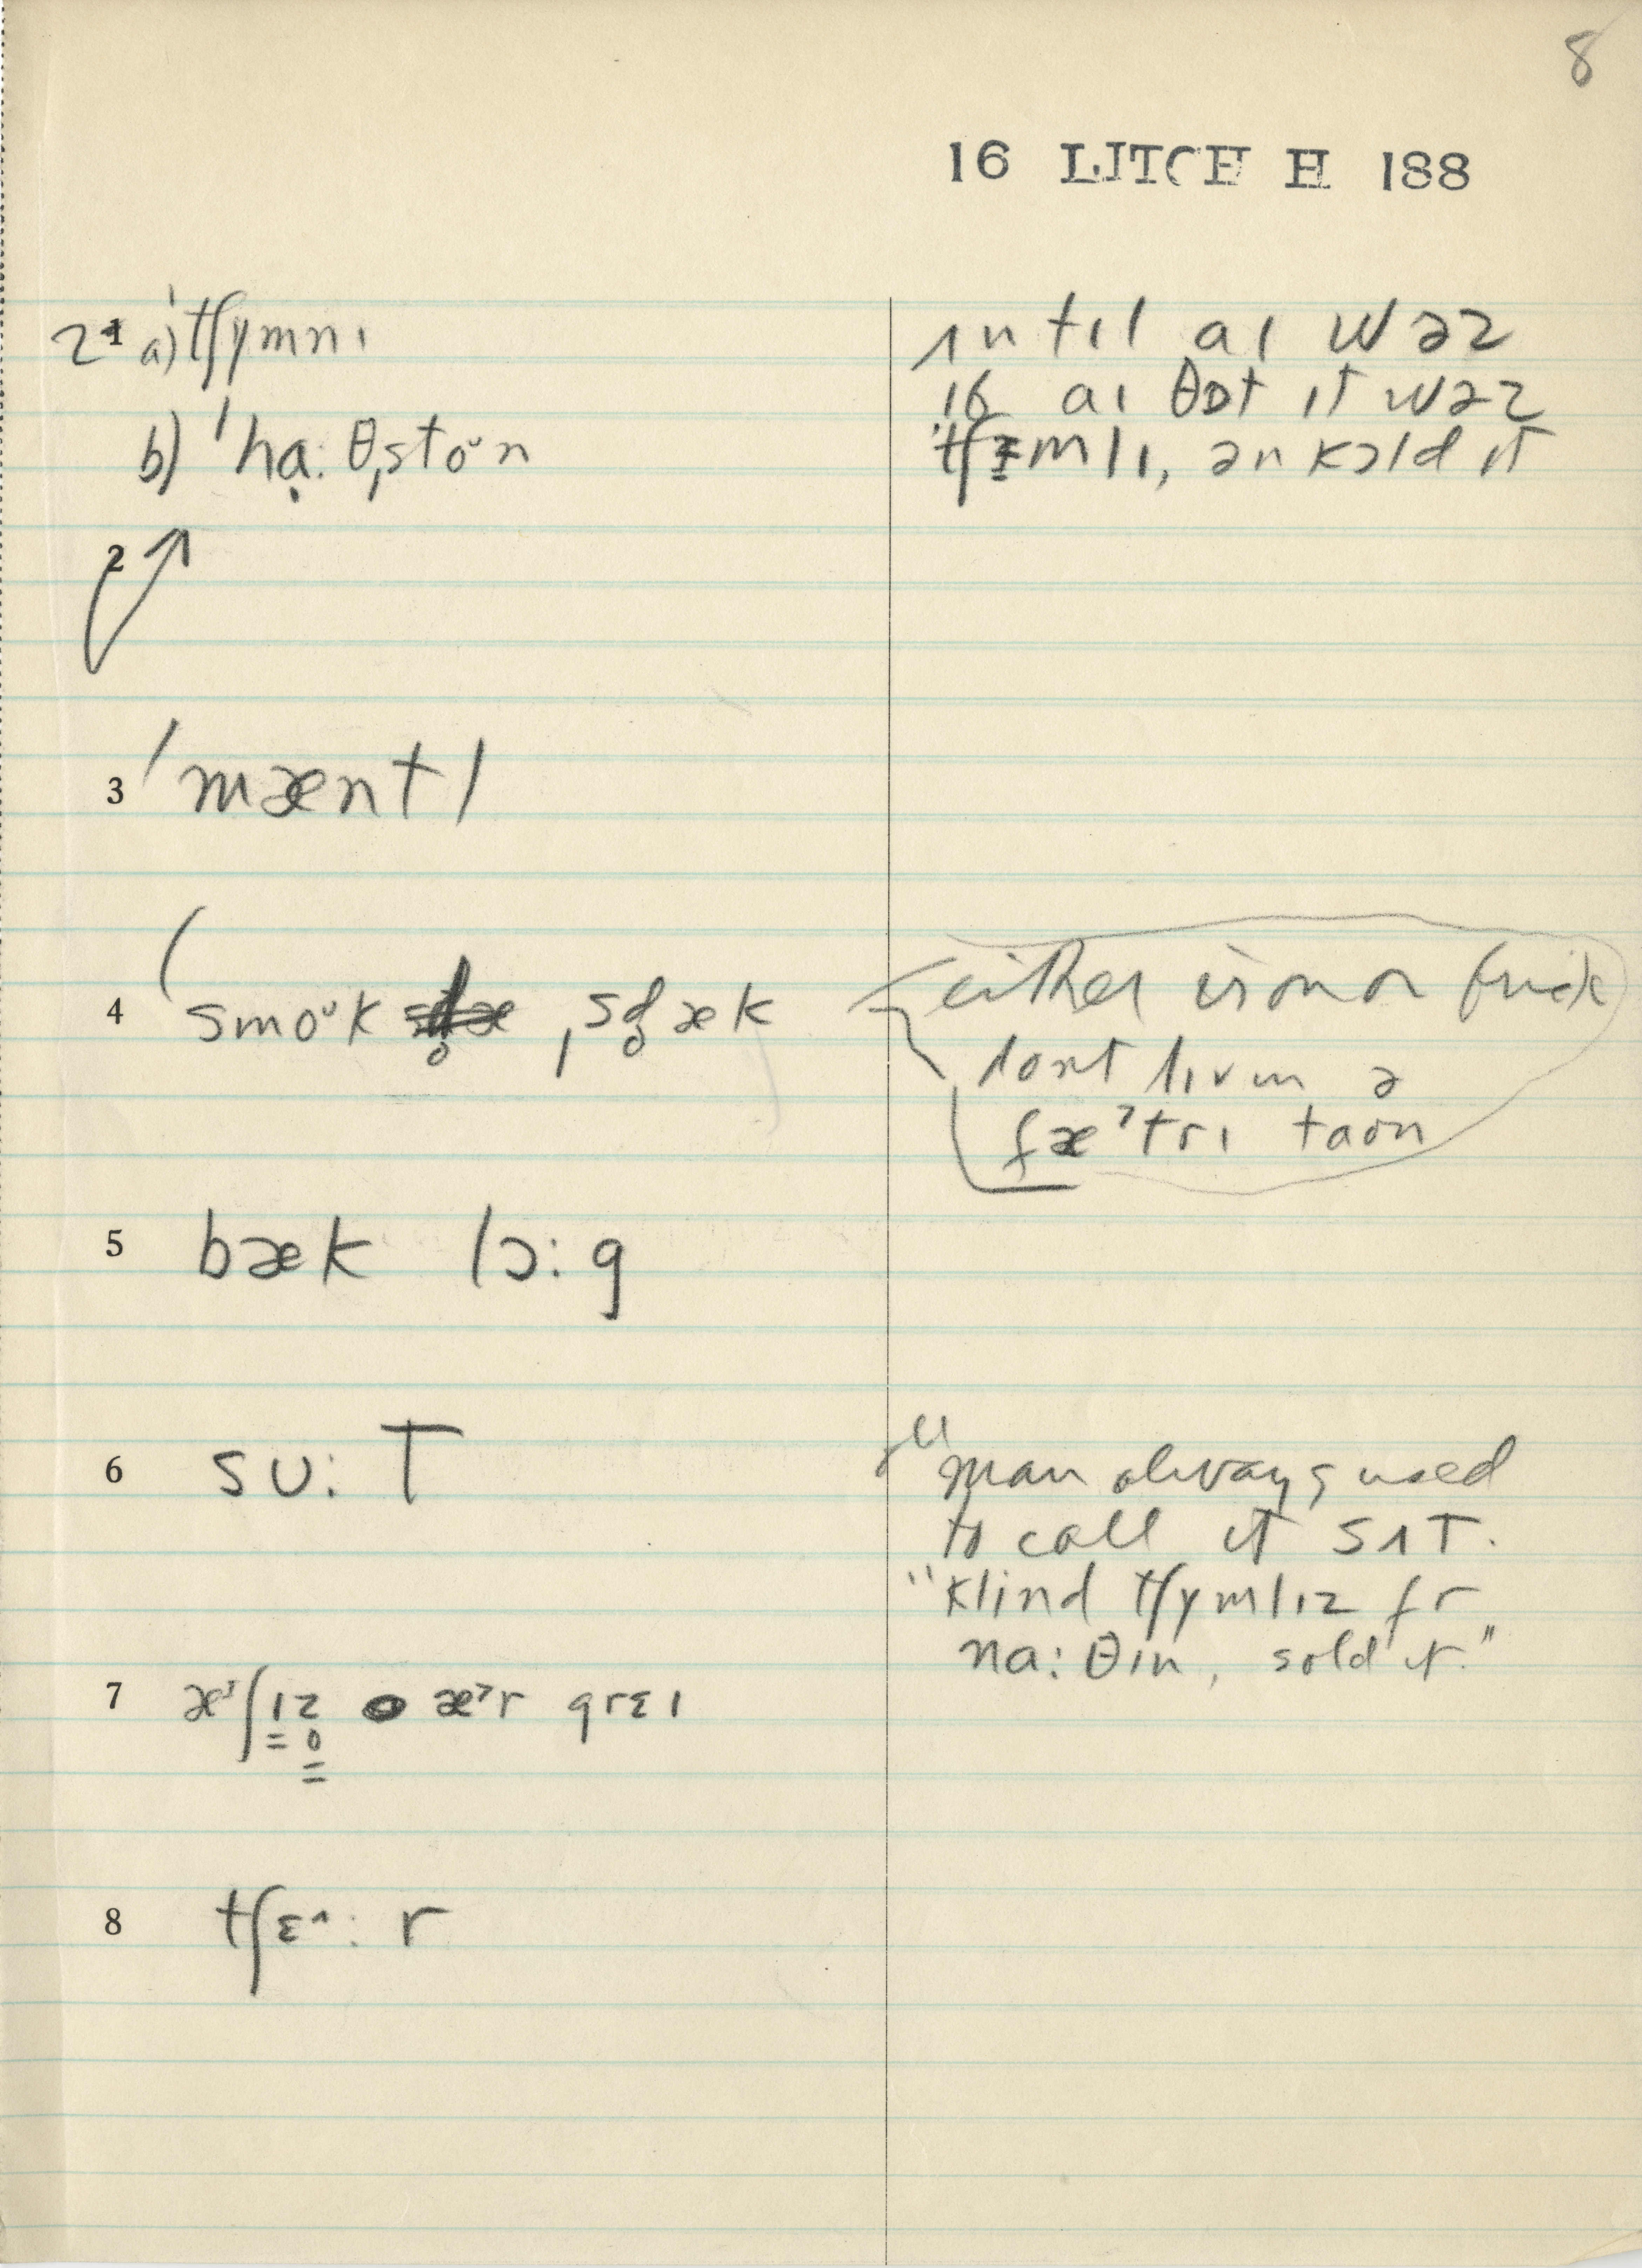 8
16 LITCH H 188
1 2 a) ˈtʃymnɪ
b) ˈhạːθˌstoᵘn
2
3 ˈmæntl
4 (smoᵘk ˌsd̥æk
5 bæk lɔːg
6 sʊːT
7 æ˃ʃɪz̥ æ˃r greɪ
8 tʃɛ^ːr
ʌntɪl aɪ wəz
16 aɪ θɒt ɪt wəz
ˈtʃɪmlɪ, ən kɔld ɪt
either iron or brick
dont lɪv ɪn ə
fæ˃tri taʊn
"man always used
to call it sʌT.
"klind tʃymlɪz fr
naːθɪn, sold it."